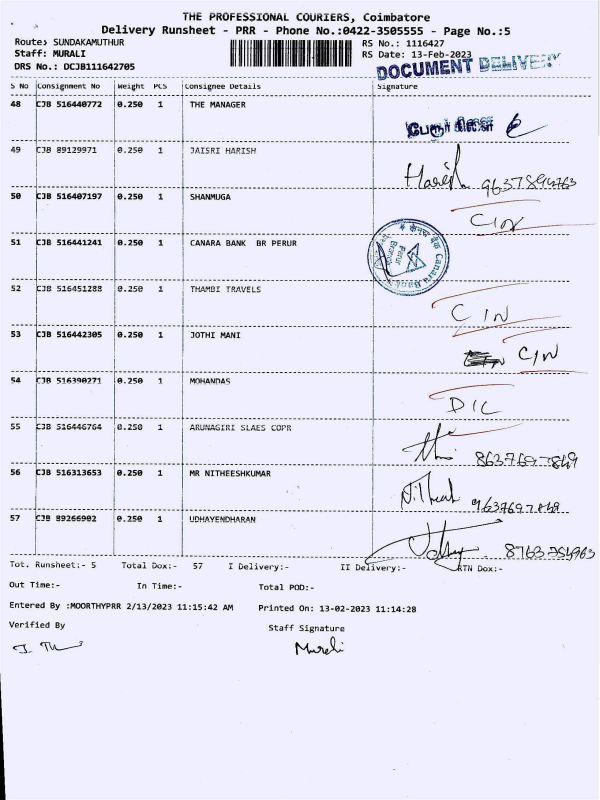 THE PROFESSIONAL COURIERS, Coimbatore
Delivery Runsheet - PRR - Phone No.:0422-3505555 - Page No.:5
Route: SUNDAKAMUTHUR RS No.: 1116427
Staff: MURALI RS Date: 13-Feb-2023
DRS No.: DCJB111642705 DOCUMENT DELIVERY
S No Consignment No Weight PCS Consignee Details Signature
48 CJB 516440772 0.250 1 THE MANAGER
பேரூர் கிளை
49 CJB 89129971 0.250 1 JAISRI HARISH
Harish
50 CJB 516407197 0.250 1 SHANMUGA
CIN
51 CJB 516441241 0.250 1 CANARA BANK BR PERUR
केनरा बैंक Canara Bank
Perur Branch
52 CJB 516451288 0.250 1 THAMBI TRAVELS
CIN
53 CJB 516442305 0.250 1 JOTHI MANI
CIN
54 CJB 516390271 0.250 1 MOHANDAS
DIC
55 CJB 516446764 0.250 1 ARUNAGIRI SLAES COPR
56 CJB 516313653 0.250 1 MR NITHEESHKUMAR
57 CJB 89266902 0.250 1 UDHAYENDHARAN
Tot. Runsheet:- 5 Total Dox:- 57 I Delivery:- II Delivery:- RTN Dox:-
Out Time:- In Time:- Total POD:-
Entered By :MOORTHYPRR 2/13/2023 11:15:42 AM Printed On: 13-02-2023 11:14:28
Verified By Staff Signature
Murali